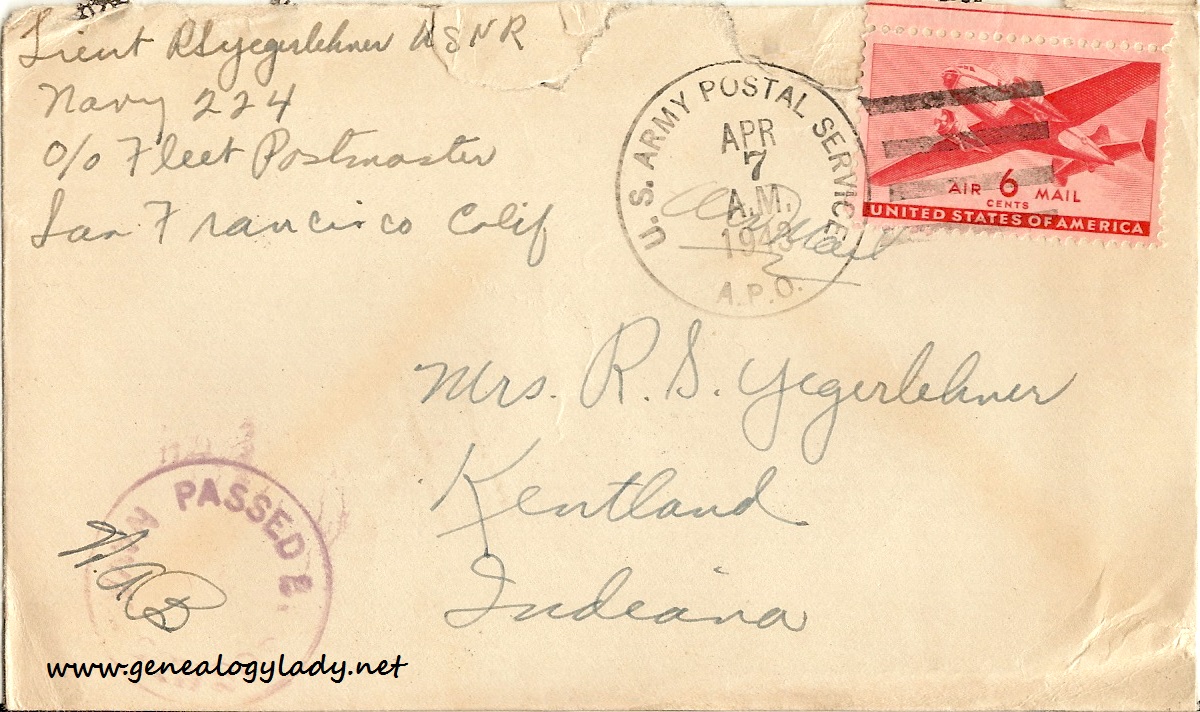 Lieut RSYegerlehner USNR
Navy 224
c/o Fleet Postmaster
San Francisco Calif
U.S. ARMY POSTAL SERVICE
APR
7
A.M.
1943
A.P.O.
Air Mail
AIR 6 MAIL
CENTS
UNITED STATES OF AMERICA
Mrs. R. S. Yegerlehner
Kentland
Indiana
PASSED B
W.A.B
www.genealogylady.net